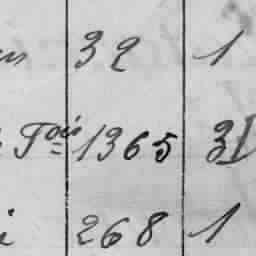 32 1
Tois 1365 31
268 1